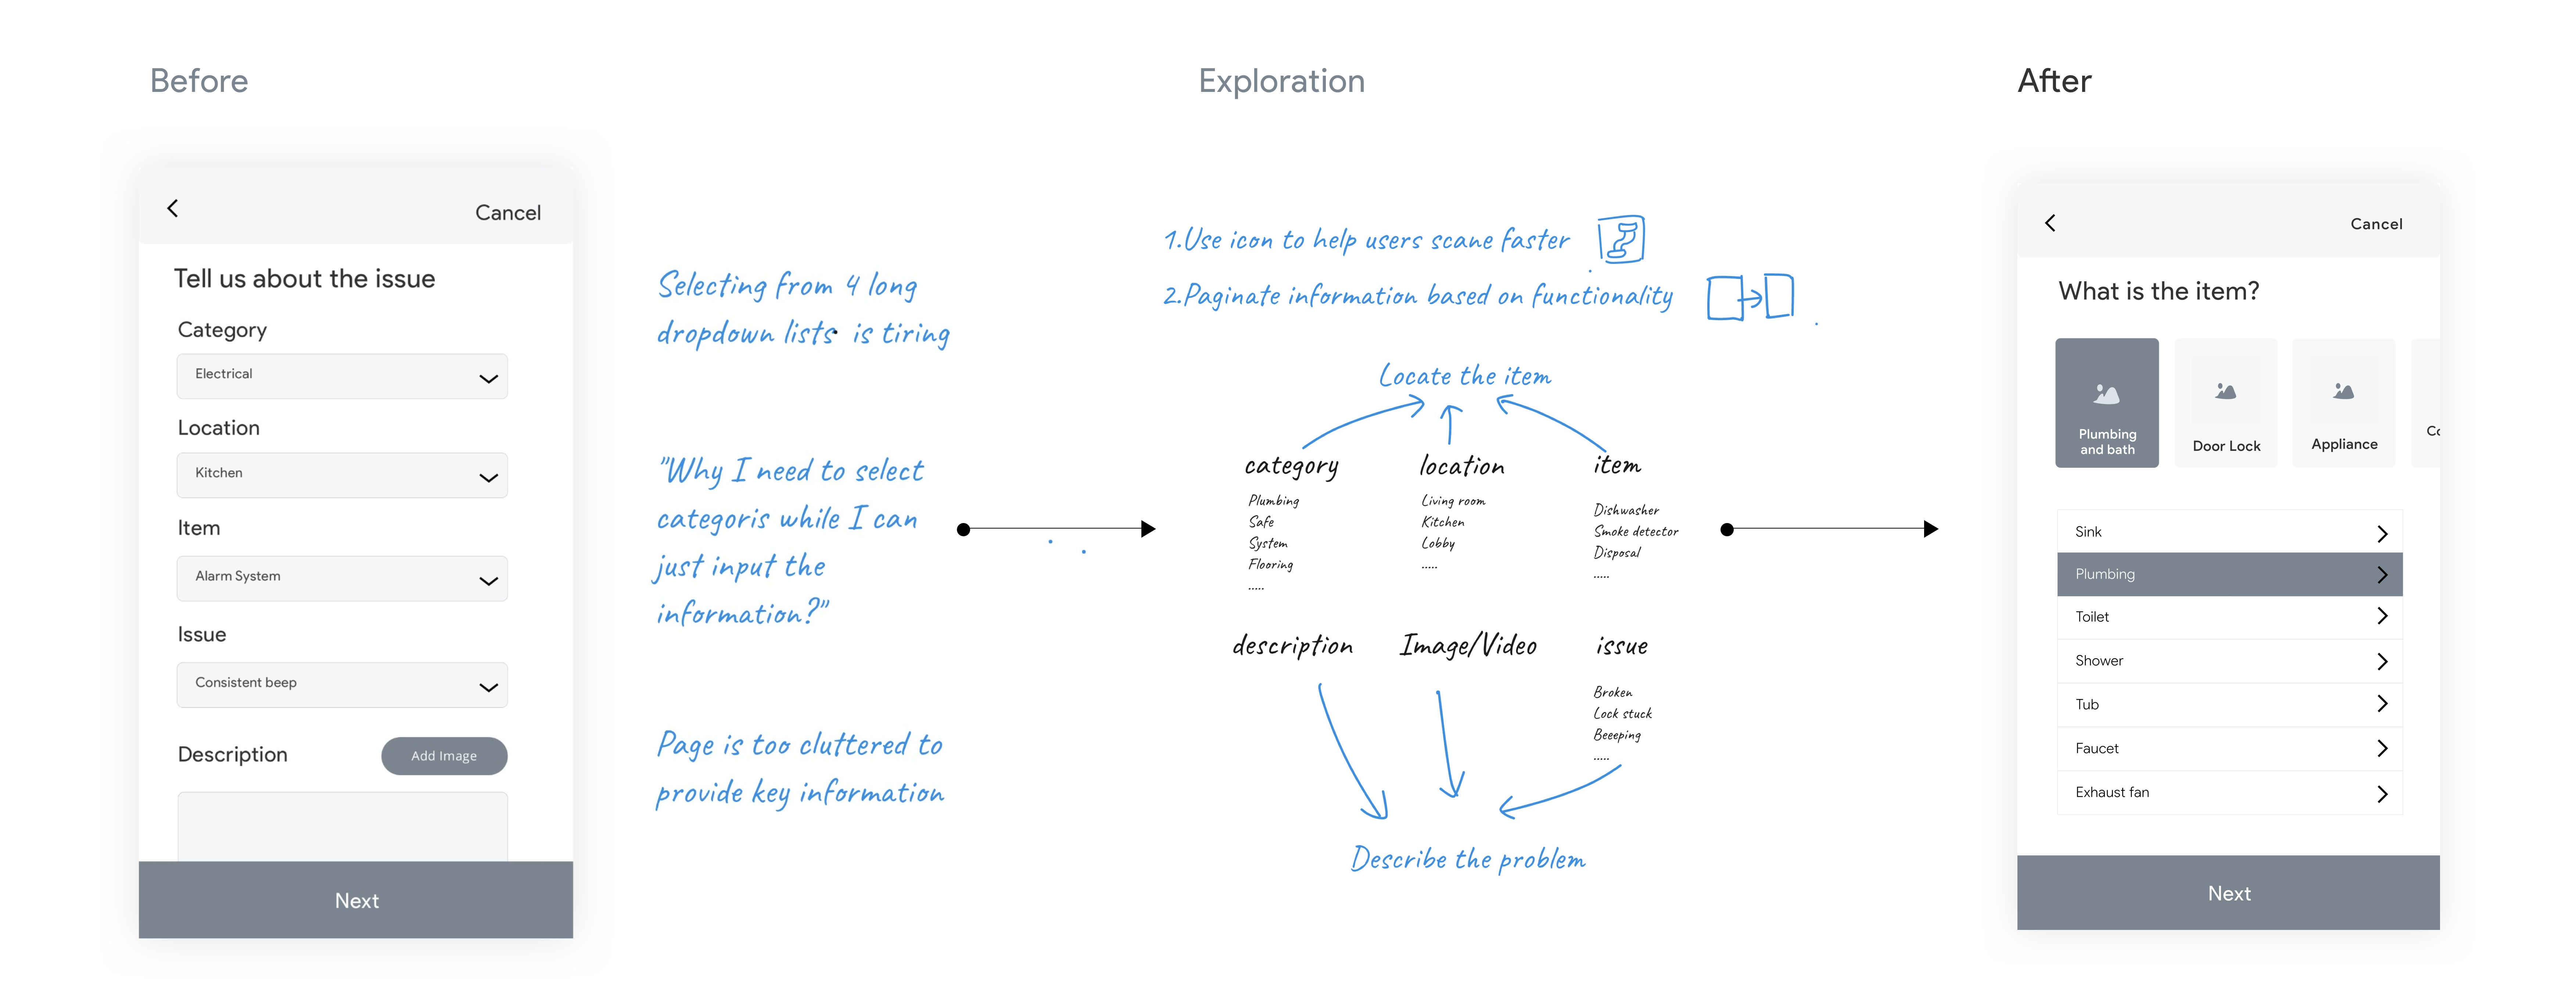 Before
Cancel
Tell us about the issue
Category
Electrical
Location
Kitchen
Item
Alarm System
Issue
Consistent beep
Description
Add Image
Next
Selecting from 4 long
dropdown lists is tiring
"Why I need to select
categoris while I can
just input the
information?"
Page is too cluttered to
provide key information
Exploration
1.Use icon to help users scane faster
2.Paginate information based on functionality
Locate the item
category
Plumbing
Safe
System
Flooring
.....
location
Living room
Kitchen
Lobby
.....
item
Dishwasher
Smoke detector
Disposal
.....
description
Image/Video
issue
Broken
Lock stuck
Beeeping
.....
Describe the problem
After
Cancel
What is the item?
Plumbing
and bath
Door Lock
Appliance
Co
Sink
Plumbing
Toilet
Shower
Tub
Faucet
Exhaust fan
Next